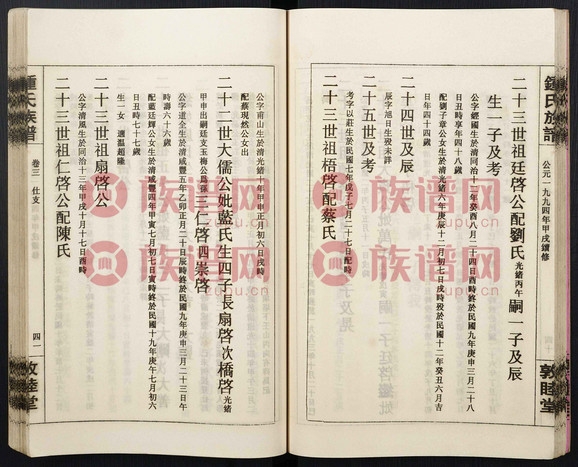 鍾氏族譜
公元一九九四年甲戌續修
敦睦堂
二十三世祖廷啓公配劉氏光緒丙午嗣一子及辰
公字經國生於清同治十二年癸酉八月二十四日酉時終於民國九年庚申三月二十八
日丑時享年四十八歲
配劉子章公女生於清光緒六年庚辰十二月初七日戌時歿於民國十二年癸丑六月吉
日年四十四歲
生一子及考
二十四世及辰
辰字旭日生歿未詳
二十五世及考
考字以莊生於民國七年戊子七月二十七日配時
二十三世祖梧啓配蔡氏
公字甫山生於清光緒十年甲申正月初六日戌時
配蔡現然公女出
二十二世大儒公妣藍氏生四子長扇啓次橋啓光緒
甲申出嗣廷支玉梅公爲孫三仁啓四崇啓
公字道全生於清咸豐五年乙卯正月二十日辰時終於民國九年庚申三月二十三日午
時壽六十六歲
配藍廷輝公女生於清咸豐四年甲寅七月初七日寅時終於民國十九年庚午七月初六
日丑時壽七十七歲
生一女 適溫超隆
二十三世祖扇啓公
公字清風生於同治十三年甲戌十月十七日酉時
二十三世祖仁啓公配陳氏
鍾氏族譜
卷三 仕支
四一
敦睦堂
族譜网
zupu.cn